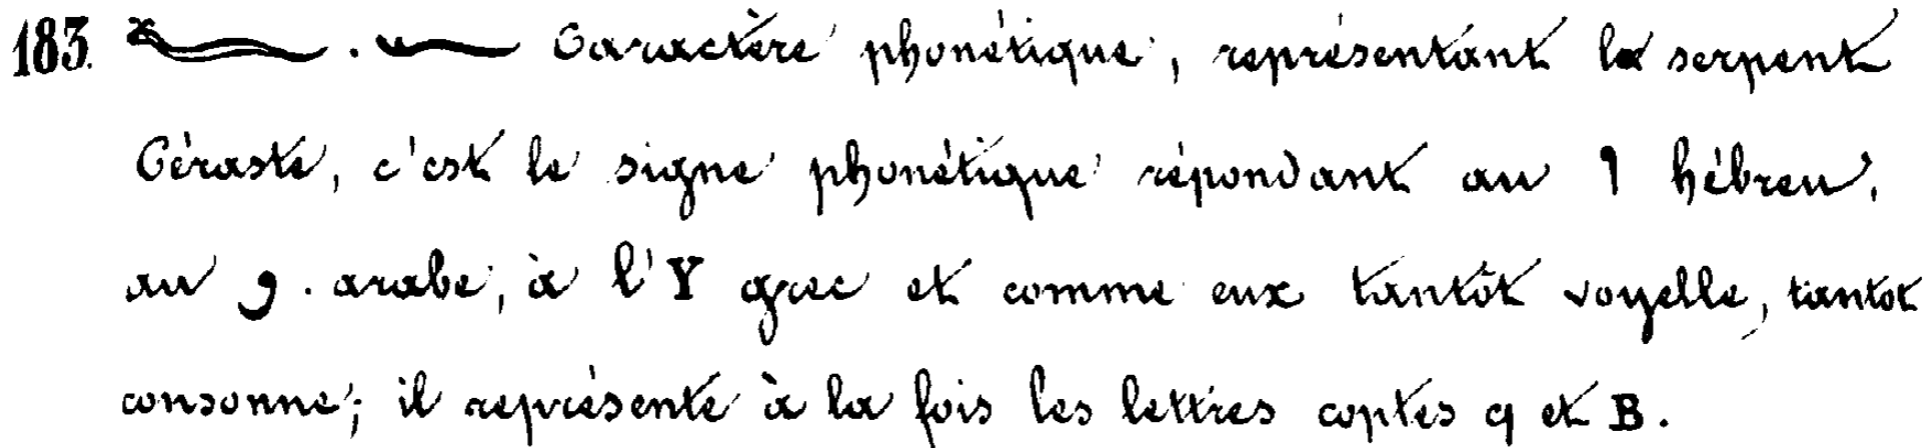 183. 𓆑 . 𓆑 Caractère phonétique, représentant le serpent
Céraste, c'est le signe phonétique répondant au ו hébreu,
au و . arabe, à l'Y grec et comme eux tantôt voyelle, tantot
consonne; il représente à la fois les lettres coptes ϥ et B.